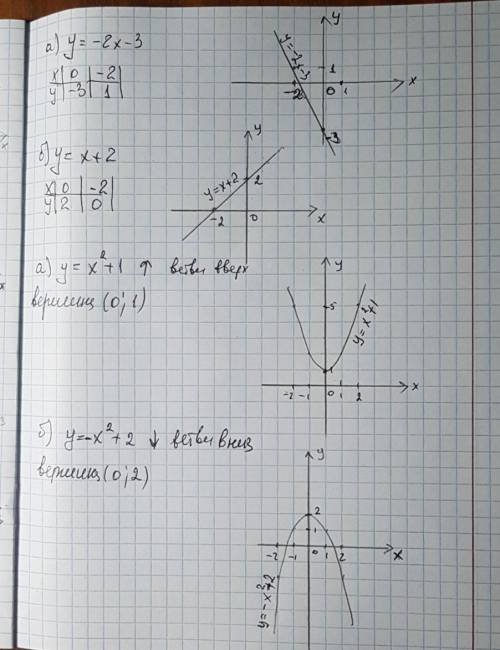 а) y = -2x-3
x | 0 | -2
y | -3 | 1
y
y=-2x-3
1
-2 0 1 x
-3
б) y = x+2
x | 0 | -2
y | 2 | 0
y
y=x+2
2
-2 0 x
а) y = x²+1 ↑ ветви вверх
вершина (0;1)
y
5
y=x²+1
1
-2 -1 0 1 2 x
б) y=-x²+2 ↓ ветви вниз
вершина (0;2)
y
2
1
-2 -1 0 1 2 x
y=-x²+2